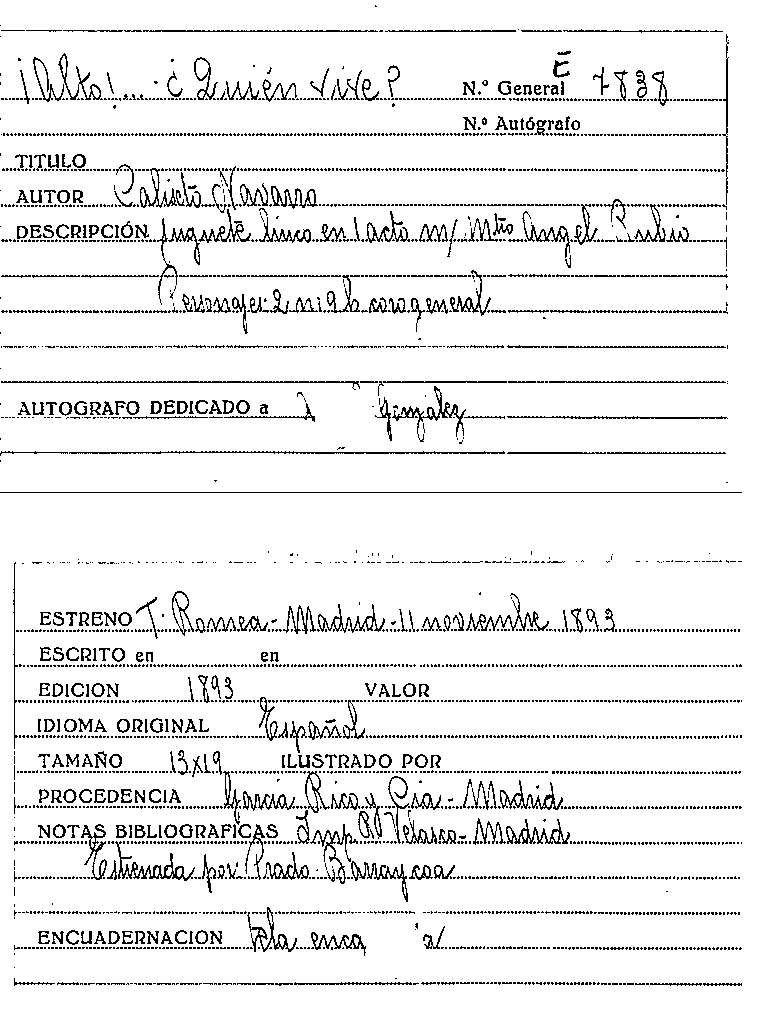 ¡Alto!... ¿Quién vive? N.º General E 7838
N.º Autógrafo
TITULO
AUTOR Calixto Navarro
DESCRIPCIÓN Juguete lírico en 1 acto m/ Mtro Angel Rubio
Personajes: 2 m: 9 h coro general
AUTOGRAFO DEDICADO a González
ESTRENO T. Romea - Madrid - 11 noviembre 1893
ESCRITO en en
EDICION 1893 VALOR
IDIOMA ORIGINAL Español
TAMAÑO 13x19 ILUSTRADO POR
PROCEDENCIA García Rico y Cia - Madrid
NOTAS BIBLIOGRAFICAS Imp. R. Velasco - Madrid
Estrenada por: Prado. Barraycoa
ENCUADERNACION tela